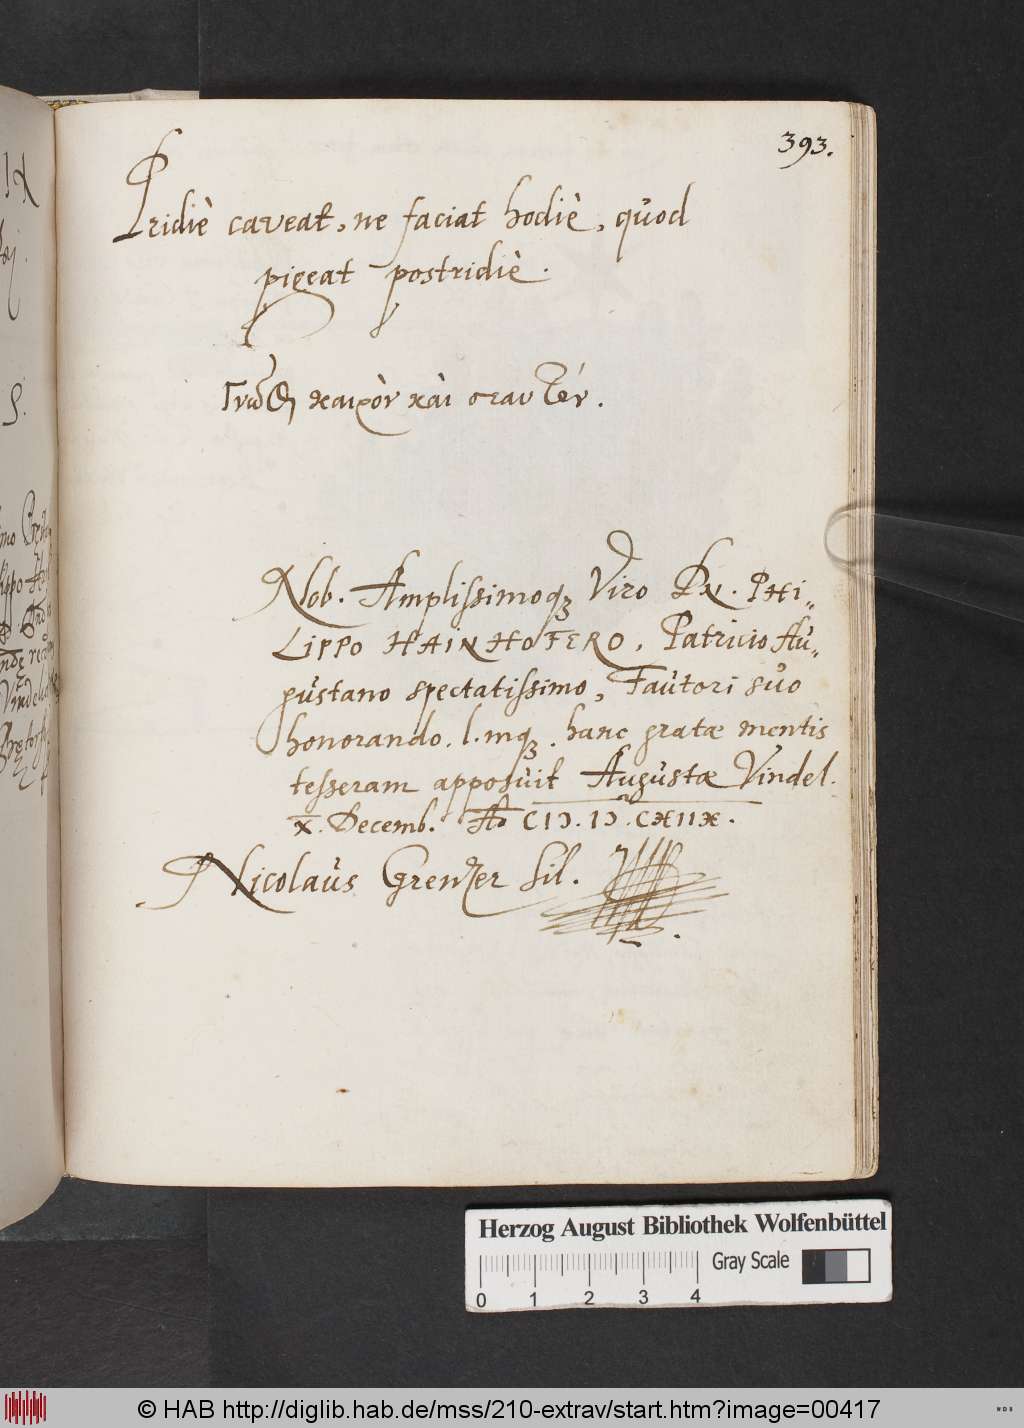 393.
Pridiè caveat, ne faciat hodiè, quod
pigeat postridiè.
Γνῶθι καιρὸν καὶ σταυτὸν.
Nob. Amplissimoq; Viro Dn. PHI„
LIPPO HAINHOFERO, Patricio Au„
gustano spectatissimo, Fautori suo
honorando. l. mq;. hanc gratæ mentis
tesseram apposuit Augustæ Vindel.
X. Decemb. Aō CIↃ. IↃ. CXIIX.
Nicolaus Grenzer Sil.
Herzog August Bibliothek Wolfenbüttel
Gray Scale
0 1 2 3 4
© HAB http://diglib.hab.de/mss/210-extrav/start.htm?image=00417